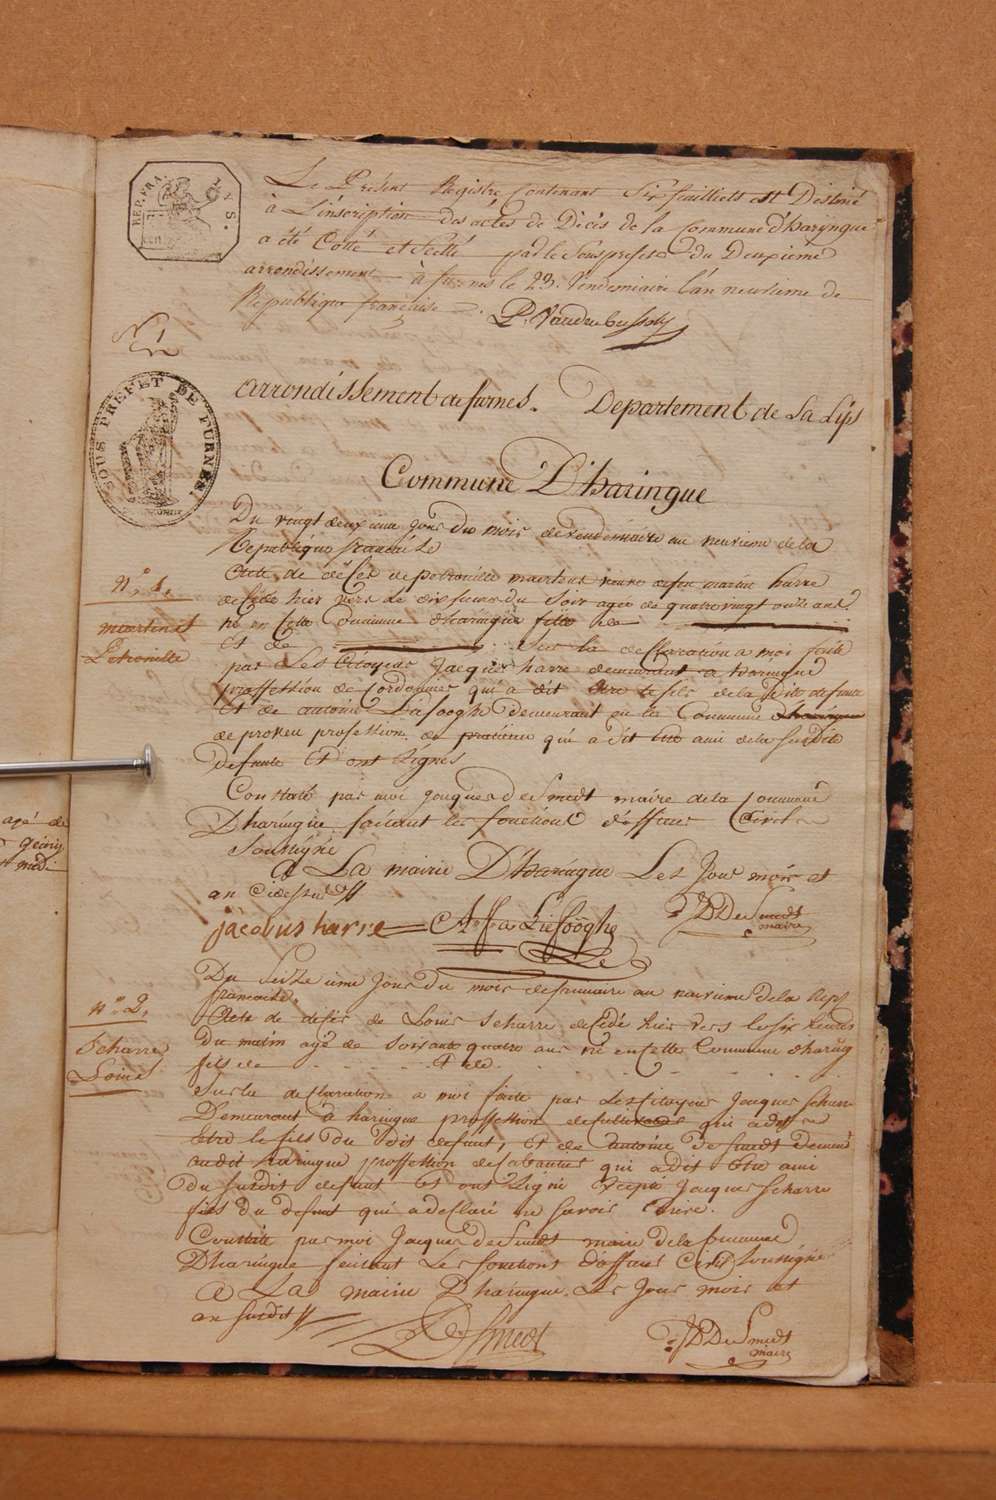 REP. FRA.
Le Présent Registre Contenant Six feuilliets est Destiné
à L'inscription des actes de Décés de la Commune d'haryngue
a été Cotté et Pa par le Souspréfet du Deuxieme
arrondissement à furnes le 29. Vendemiaire l'an neuvieme de
Republique française
SOUS PREFET DE FURNES
arrondissement de furnes. Departement de La Lijs
Commune D'haringue
Du vingt deuxieme Jour du mois de vendémiaire an neuvieme de la
Republique francaise
N.° 1.
martens
Petronille
Acte de décès de petronille maertens veuve de feu martin harre
decedée hier vers de dix heures du Soir agée de quatrevingt onze ans
né en Cette Commune d'haringue fille de
Et de Sur la declaration a moi faite
par Les Citoyens Jacques harre demeurant a haringue
proffession de cordonnier qui a dit être le fils de la dite defunte
Et de antoine Liefooghe demeurant en la Commune
de proven profession de qui a dit être ami de la susdite
defunte Et ont signés
Constaté par moi Jacques De Smedt maire de la Commune
D'haringue faisant les fonctions d'officier Civil
Soussigné
A La mairie D'haringue Les Jour mois et
an cidessus
jacobus harre A. F. a Liefooghe JD De Smedt
maire
n.° 2.
Scharre
Louis
Du Seizieme Jour Du mois de frimaire an neuvieme de la Rep
francaise.
Acte de décès de Louis Scharre decédé hier vers les six heures
Du matin agé de soixante quatre ans né en cette Commune d'haringue
fils de Et de
Sur la declaration a moi faite par Les citoyens Jacques Scharre
Demeurant à haringue proffession de qui a dit
Etre le fils Du Dit defunt, et de antoine De Smedt Demeurant
audit haringue proffession de cabartier qui a dit Etre ami
Du Susdit defunt Et ont Signé Excepté Jacques Scharre
fils du defunt qui a declaré ne savoir Ecrire.
Constaté par moi Jacques De Smedt maire de la Commune
D'haringue faisant Les fonctions d'officier Civil Soussigné
A La mairie D'haringue. Les Jour mois et
an Susdit
De Smedt JD De Smedt
maire
agé de